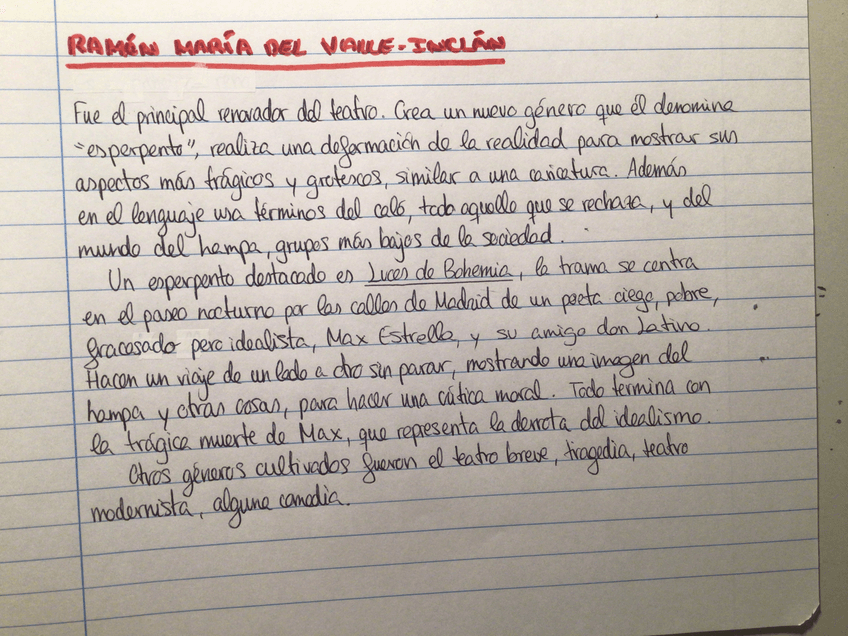 RAMÓN MARÍA DEL VALLE-INCLÁN
Fue el principal renovador del teatro. Crea un nuevo género que él denomina
"esperpento", realiza una deformación de la realidad para mostrar sus
aspectos más trágicos y grotescos, similar a una caricatura. Además
en el lenguaje usa términos del caló, todo aquello que se rechaza, y del
mundo del hampa, grupos más bajos de la sociedad.
Un esperpento destacado es Luces de Bohemia, la trama se centra
en el paseo nocturno por las calles de Madrid de un poeta ciego, pobre,
fracasado pero idealista, Max Estrella, y su amigo don Latino.
Hacen un viaje de un lado a otro sin parar, mostrando una imagen del
hampa y otras cosas, para hacer una crítica moral. Todo termina con
la trágica muerte de Max, que representa la derrota del idealismo.
Otros géneros cultivados fueron el teatro breve, tragedia, teatro
modernista, alguna comedia.